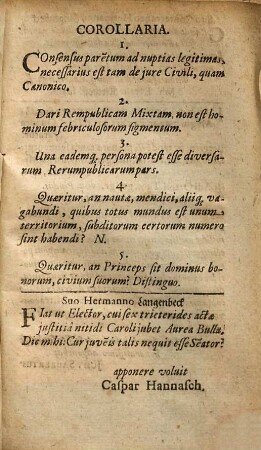 COROLLARIA.
1.
COnsensus parẽtum ad nuptias legitimas,
necessarius est tam de jure Civili, quam
Canonico.
2.
Dari Rempublicam Mixtam, non est ho-
minum febriculosorum figmentum.
3.
Una eademq; persona potest esse diversa-
rum Rerumpublicarum pars.
4.
Quæritur, an nautæ, mendici, aliiq, va-
gabundi, quibus totus mundus est unum
territorium, subditorum certorum numero
sint habendi? N.
5.
Quæritur, an Princeps sit dominus bo-
norum, civium suorum? Distinguo.
Suo Hermanno Langenbeck
FIas ut Elector, cui sex trieterides actæ
justitiâ nitidi Caroli jubet Aurea Bulla.
Dic mihi: Cur juvẽis talis nequit esse Sẽator?
apponere voluit
Caspar Hannasch.